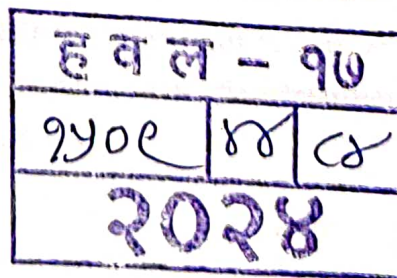 हवल - १७
१५०९ ४४ ८४
२०२४